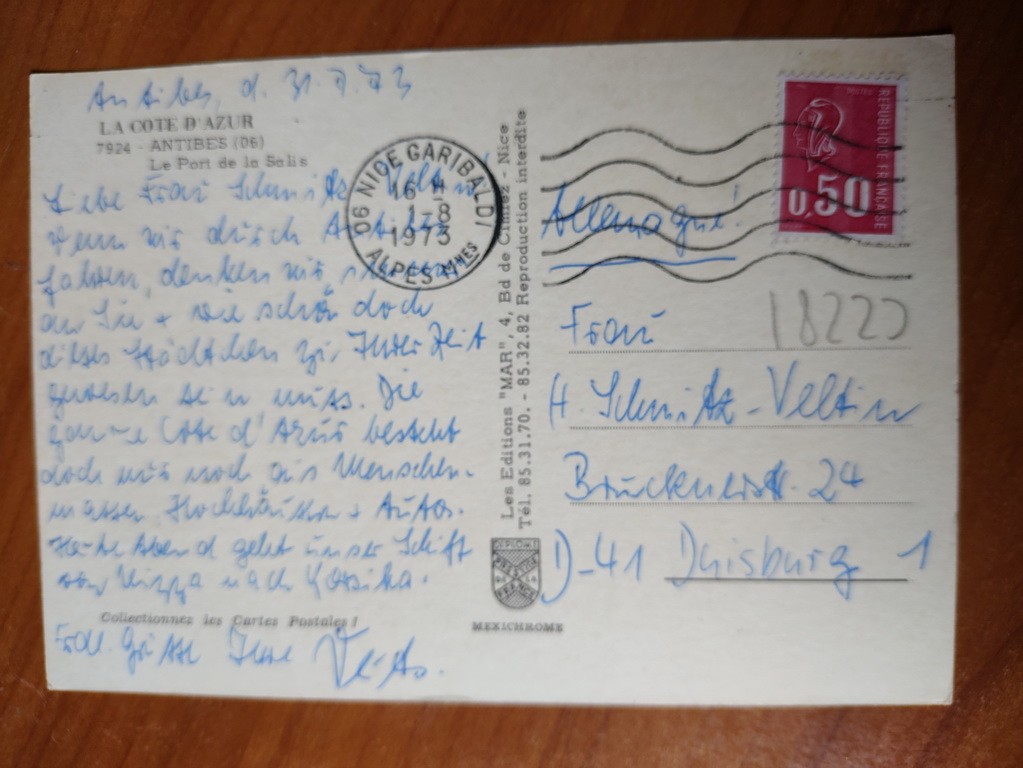 Antibes, d. 31.7.73
LA COTE D'AZUR
7924 - ANTIBES (06)
Le Port de la Salis
Liebe Frau Schmitz-Veltin!
Wenn wir durch Antibes
fahren, denken wir
an Sie + wie schön doch
dieses Städtchen zu Ihrer Zeit
gewesen sein muss. Die
ganze Cote d'Azur besteht
doch nur noch aus Menschen-
massen, Hochhäuser + Autos.
Heute Abend geht unser Schiff
von Nizza nach Korsika.
Collectionnez les Cartes Postales !
Frdl. Grüsse Ihre
06 NICE GARIBALDI
16 H
1-8
1973
ALPES MMES
Les Editions "MAR", 4, Bd de Cimiez - Nice
Tél. 85.31.70. - 85.32.82 Reproduction interdite
MEXICHROME
POSTES
REPUBLIQUE FRANÇAISE
0,50
Allemagne!
18220
Frau
H. Schmitz-Veltin
Brucknerstr. 24
D-41 Duisburg 1